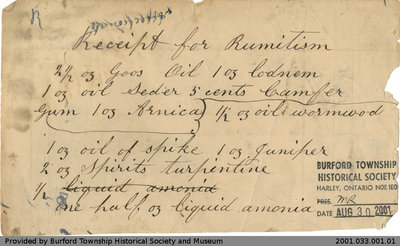 Receipt for Rumitism
2 ½ oz Goos Oil 1 oz Lodnem
1 oz oil Seder 5 cents Camfer
Gum 1 oz Arnica 1 ½ oz oil wormwood
1 oz oil of spike 1 oz Juniper
2 oz Spirits turpintine
½ liquid amonia
one half oz liquid amonia
BURFORD TOWNSHIP
HISTORICAL SOCIETY
HARLEY, ONTARIO N0E 1E0
PRES. MR
DATE AUG 30 2001
Provided by Burford Township Historical Society and Museum
2001.033.001.01